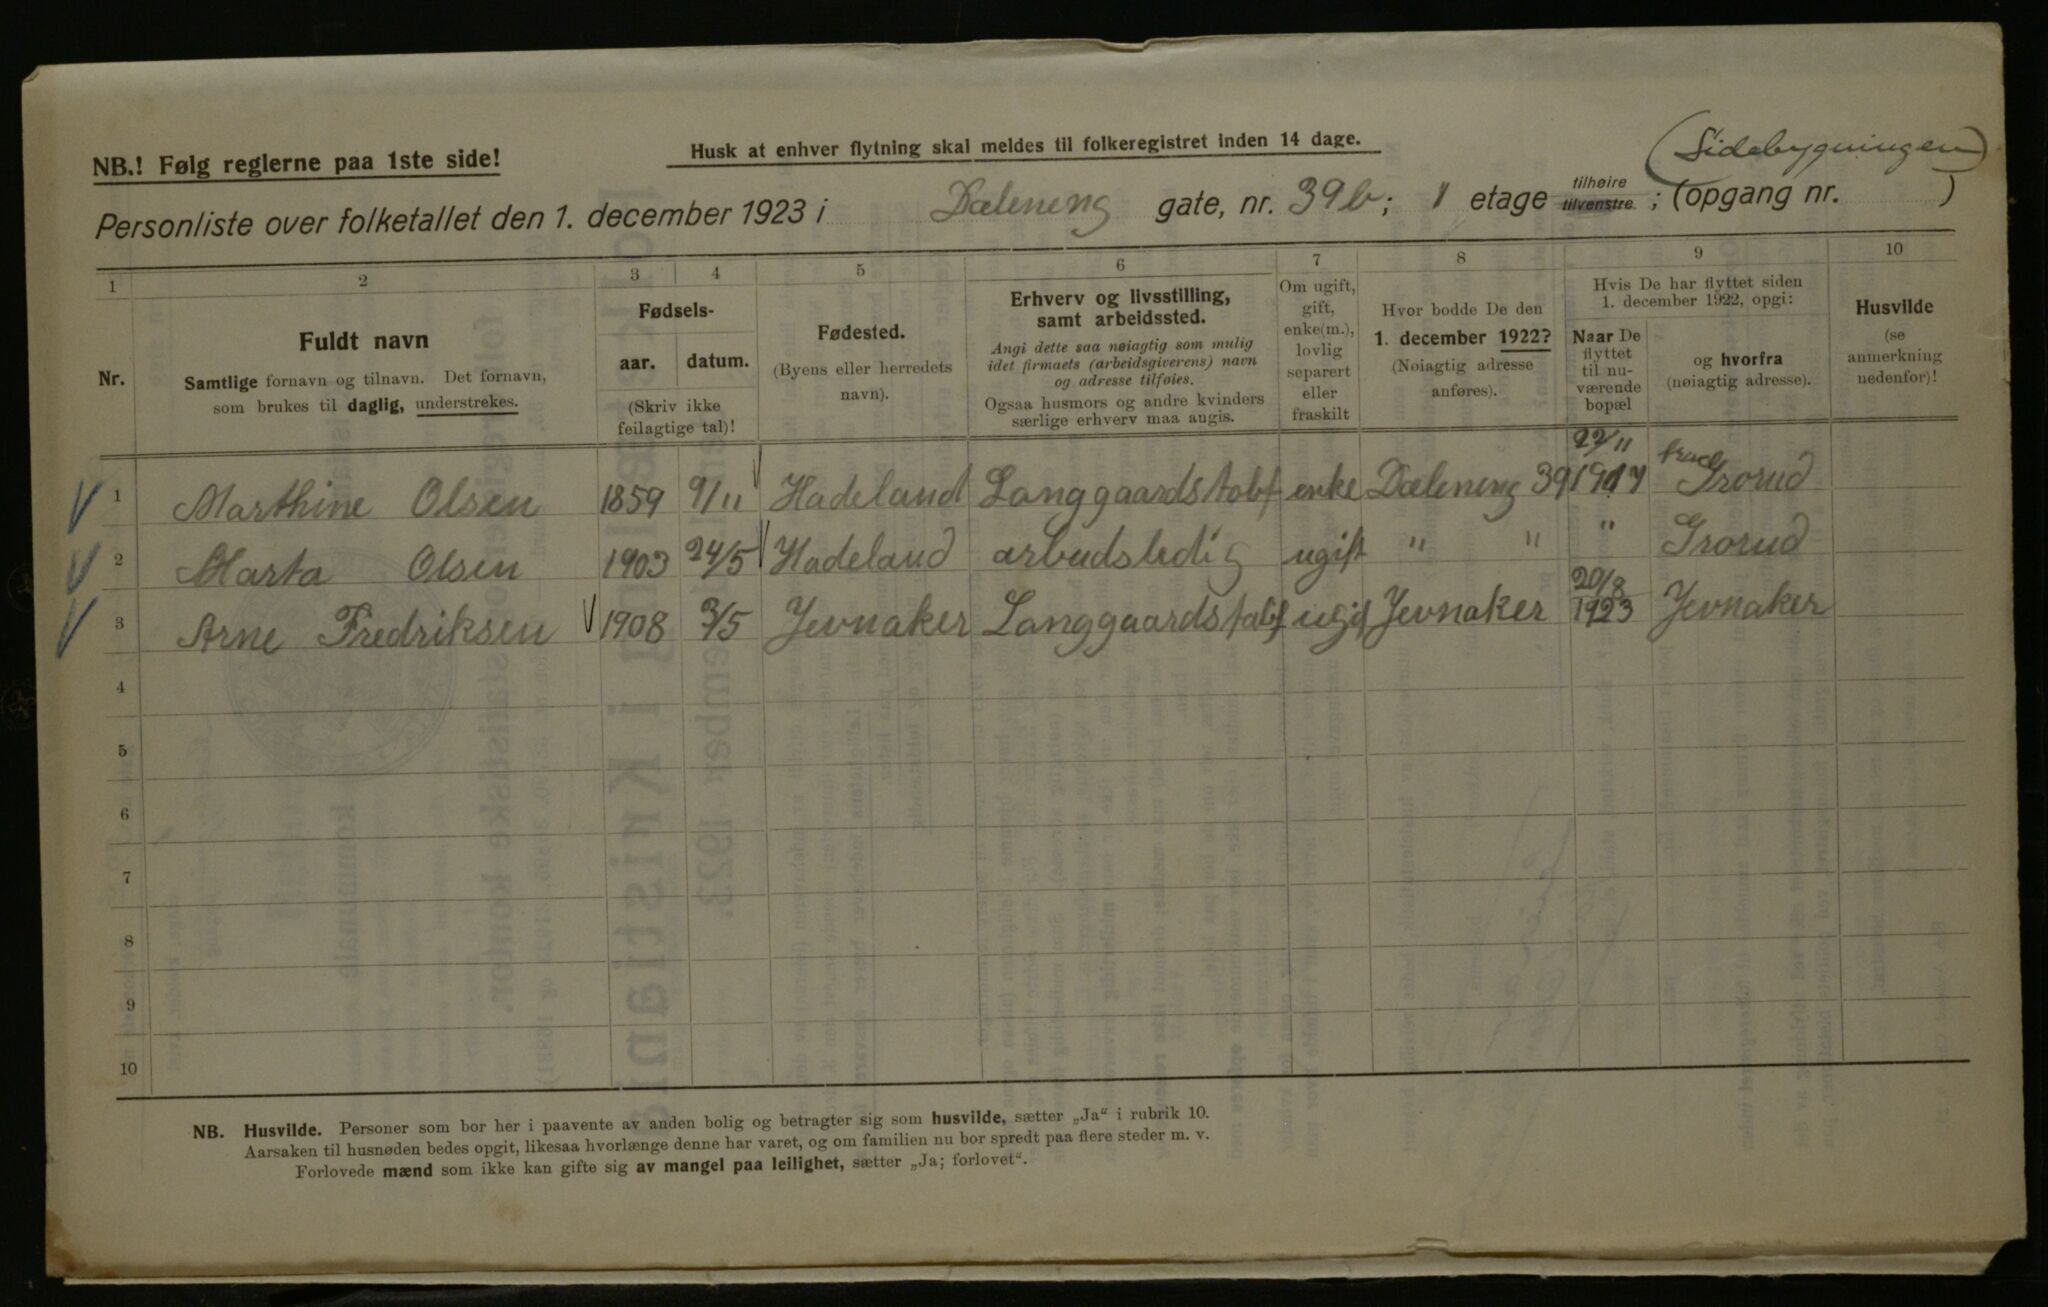 NB.! Følg reglerne paa 1ste side!
Husk at enhver flytning skal meldes til folkeregistret inden 14 dage.
(Sidebygningen)
Personliste over folketallet den 1. december 1923 i Dæleneng gate, nr. 39b; 1 etage tilhøire tilvenstre ; (opgang nr. )
1 2 3 4 5 6 7 8 9 10
Nr.
Fuldt navn
Samtlige fornavn og tilnavn. Det fornavn,
som brukes til daglig, understrekes.
Fødsels-
aar. datum.
(Skriv ikke
feilagtige tal)!
Fødested.
(Byens eller herredets
navn).
Erhverv og livsstilling,
samt arbeidssted.
Angi dette saa nøiagtig som mulig
idet firmaets (arbeidsgiverens) navn
og adresse tilføies.
Ogsaa husmors og andre kvinders
særlige erhverv maa angis.
Om ugift,
gift,
enke(m.),
lovlig
separert
eller
fraskilt
Hvor bodde De den
1. december 1922?
(Nøiagtig adresse
anføres).
Hvis De har flyttet siden
1. december 1922, opgi:
Naar De
flyttet
til nu-
værende
bopæl
og hvorfra
(nøiagtig adresse).
Husvilde
(se
anmerkning
nedenfor)!
1 Marthine Olsen 1859 9/11 Hadeland Langgaardstobf enke Dæleneng 39 22/11 1917 fra Grorud
2 Marta Olsen 1903 24/5 Hadeland arbeidsledig ugift " " " Grorud
3 Arne Fredriksen 1908 3/5 Jevnaker Langgaardstobf ugif Jevnaker 20/8 1923 Jevnaker
4
5
6
7
8
9
10
NB. Husvilde. Personer som bor her i paavente av anden bolig og betragter sig som husvilde, sætter „Ja“ i rubrik 10.
Aarsaken til husnøden bedes opgit, likesaa hvorlænge denne har varet, og om familien nu bor spredt paa flere steder m. v.
Forlovede mænd som ikke kan gifte sig av mangel paa leilighet, sætter „Ja; forlovet“.